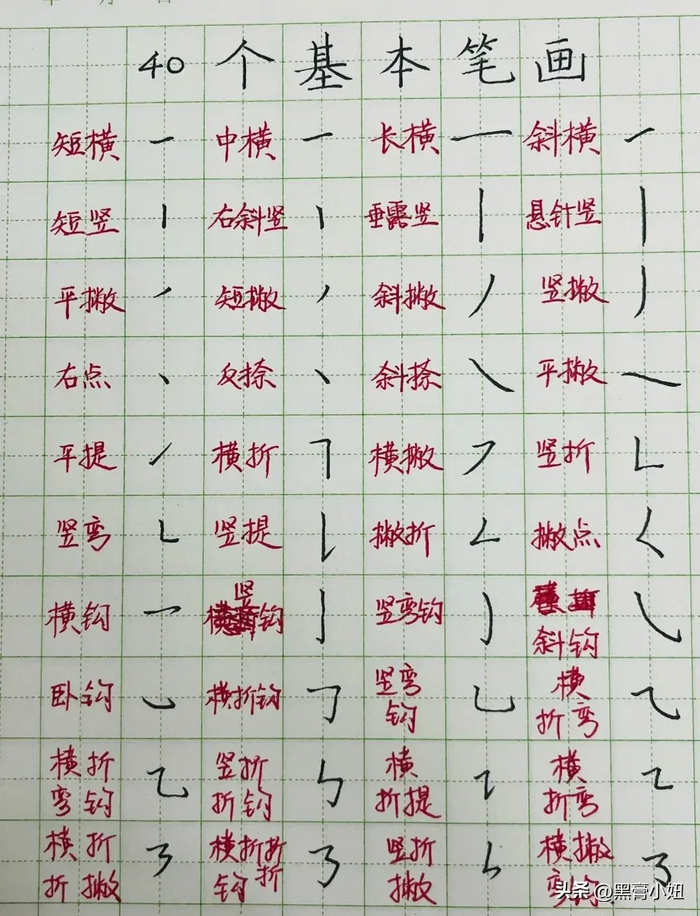 40个基本笔画
短横 中横 长横 斜横
短竖 右斜竖 垂露竖 悬针竖
平撇 短撇 斜撇 竖撇
右点 反捺 斜捺 平撇
平提 横折 横撇 竖折
竖弯 竖提 撇折 撇点
横钩 竖钩 竖弯钩 斜钩
卧钩 横折钩 竖弯钩 横折弯
横折弯钩 竖折折钩 横折提 横折弯
横折折撇 横折折折钩 竖折撇 横撇弯钩
头条@黑膏小妞